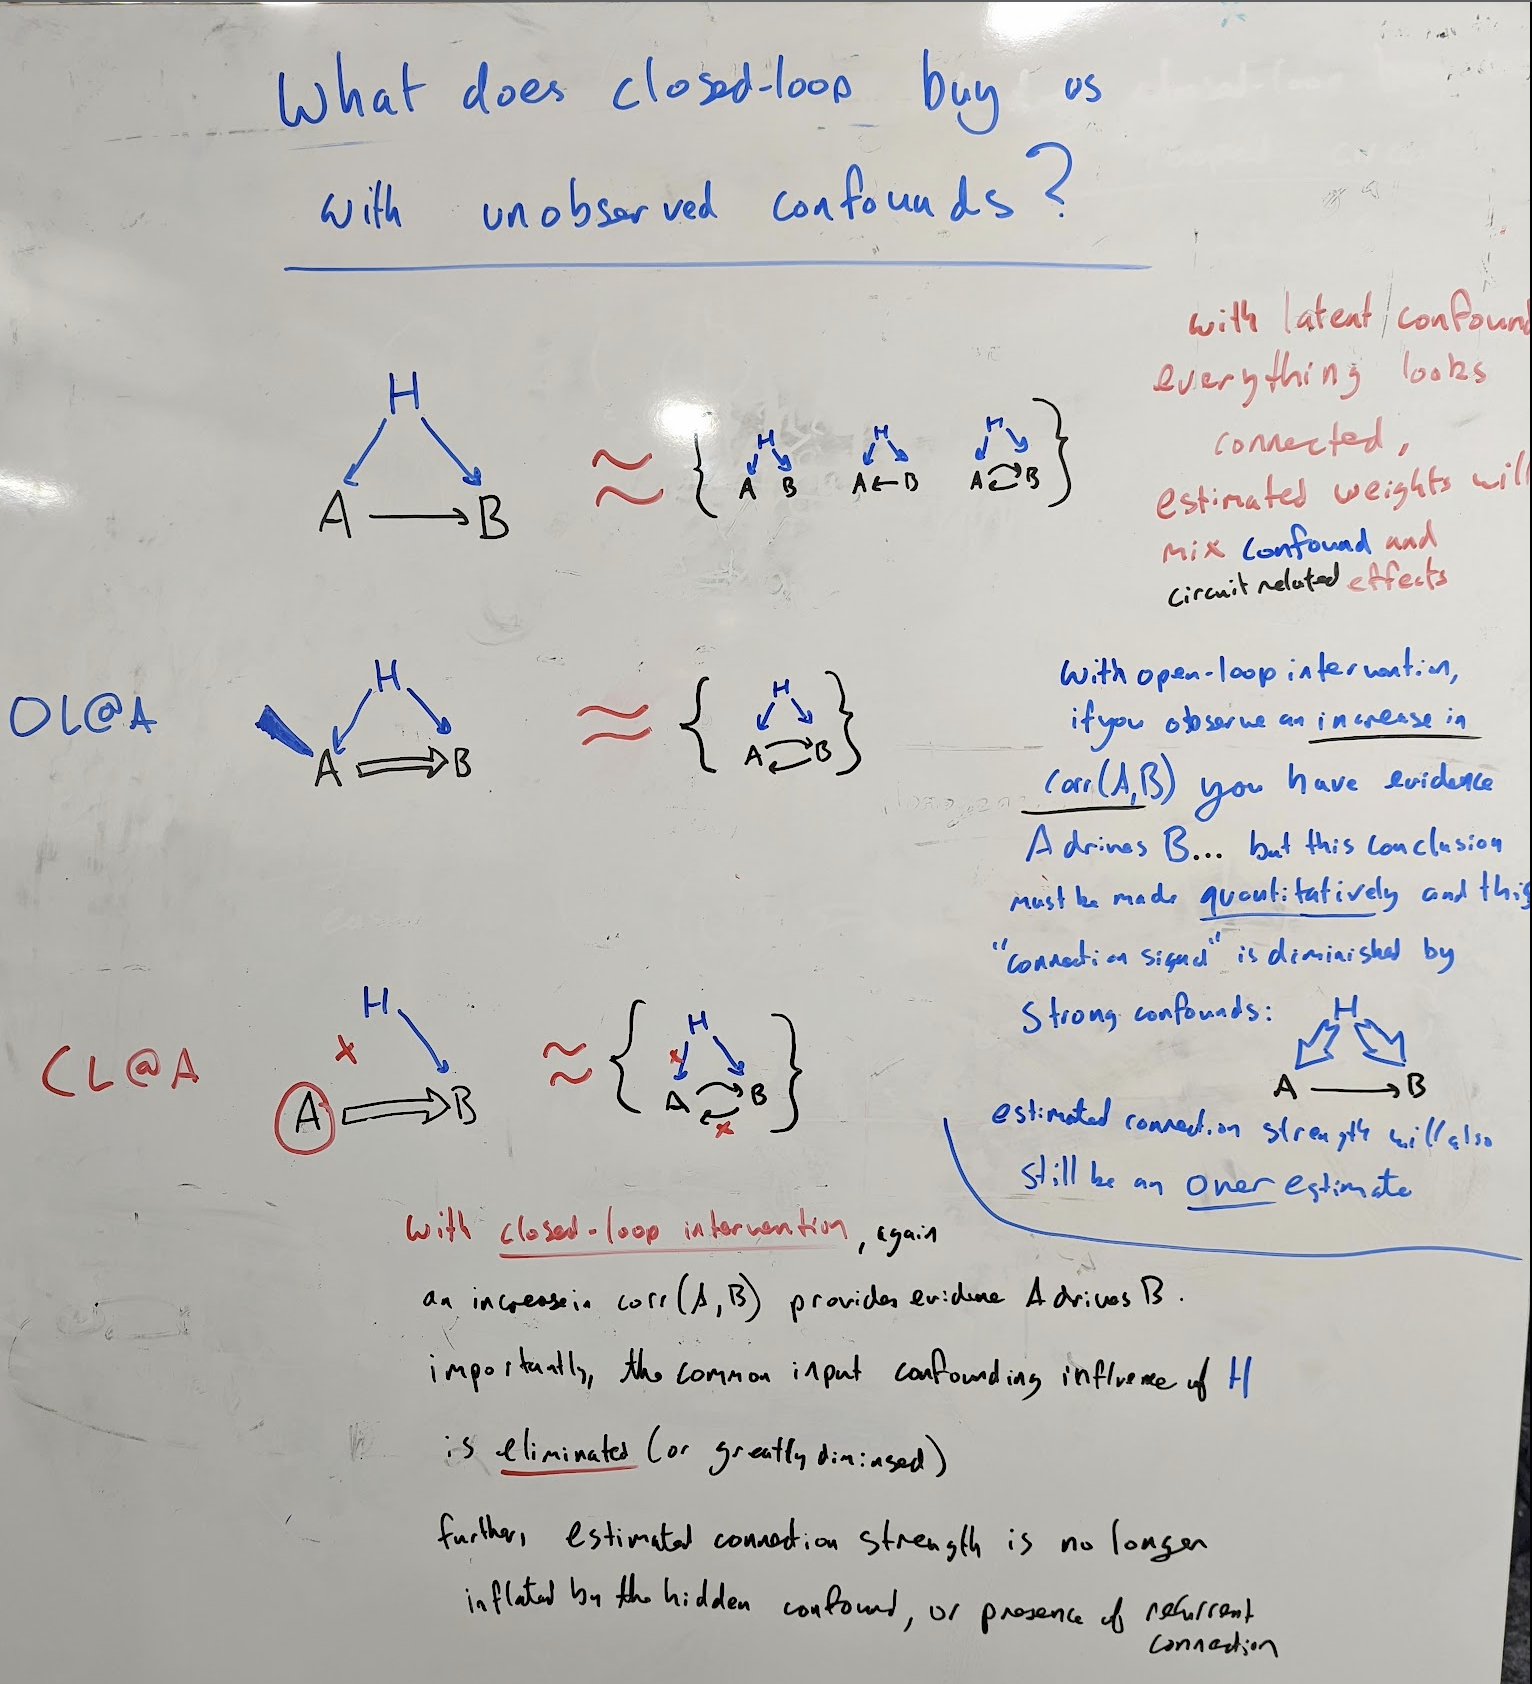 What does closed-loop buy us
with unobserved confounds?
H
A B
≈
{
H
A B
H
A B
H
A B
}
with latent confound
everything looks
connected,
estimated weights will
mix confound and
circuit related effects
OL@A
H
A B
≈
{
H
A B
}
with open-loop intervention,
if you observe an increase in
corr(A,B) you have evidence
A drives B... but this conclusion
must be made quantitatively and this
"connection signal" is diminished by
strong confounds:
H
A B
estimated connection strength will also
still be an over estimate
CL@A
H
x
A B
≈
{
H
x
A B
x
}
with closed-loop intervention, again
an increase in corr(A,B) provides evidence A drives B.
importantly, the common input confounding influence of H
is eliminated (or greatly diminsed)
further, estimated connection strength is no longer
inflated by the hidden confound, or presence of recurrent
connection